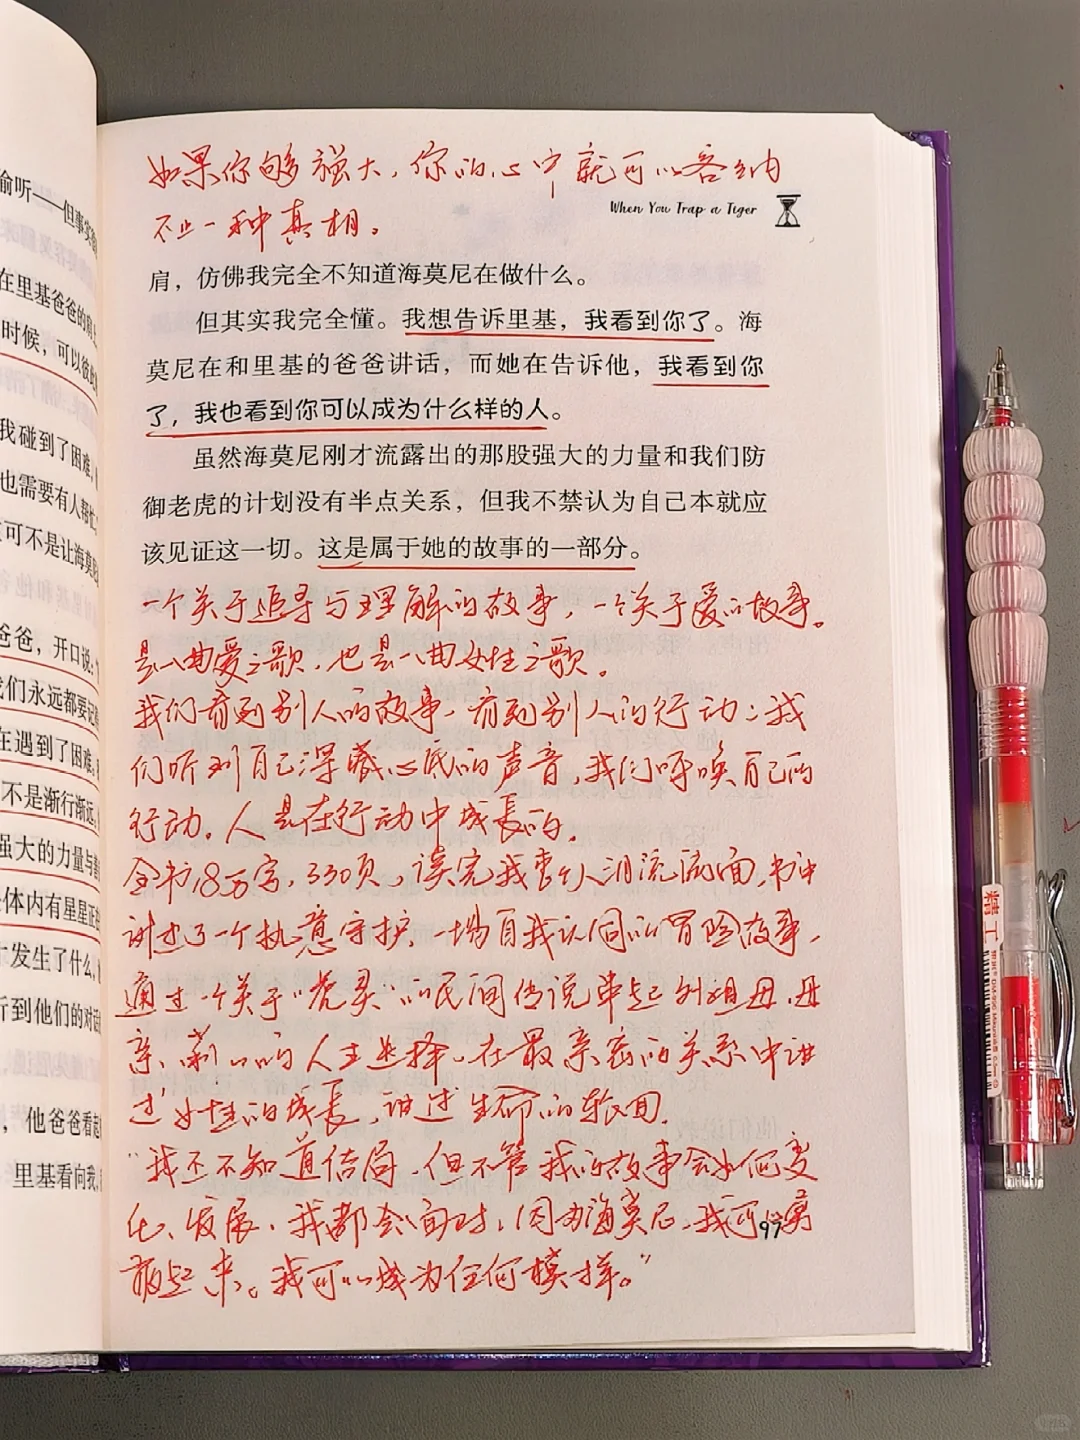 偷听——但事实
在里基爸爸的肩
时候，可以彼此
我碰到了困难，
也需要有人帮忙
可不是让海莫
爸爸，开口说：
们永远都要记
在遇到了困难，
不是渐行渐远，
强大的力量与
体内有星星正
发生了什么，
听到他们的对话
，他爸爸看起
里基看向我，
如果你够强大，你的心中就可以容纳
不止一种真相。
When You Trap a Tiger
肩，仿佛我完全不知道海莫尼在做什么。
但其实我完全懂。我想告诉里基，我看到你了。海
莫尼在和里基的爸爸讲话，而她在告诉他，我看到你
了，我也看到你可以成为什么样的人。
虽然海莫尼刚才流露出的那股强大的力量和我们防
御老虎的计划没有半点关系，但我不禁认为自己本就应
该见证这一切。这是属于她的故事的一部分。
一个关于追寻与理解的故事，一个关于爱的故事。
是一曲爱之歌，也是一曲女性之歌。
我们看到别人的故事，看到别人的行动；我
们听到自己深藏心底的声音，我们呼唤自己的
行动。人是在行动中成长的。
全书18万字，330页，读完我责任人泪流满面，书中
讲述了一个执意守护、一场自我认同的冒险故事，
通过一个关于“虎灵”的民间传说串起外祖母、母
亲、莉莉的人生选择，在最亲密的关系中讲
过女性的成长，讲过生命的轮回。
“我还不知道结局，但不管我的故事会如何变
化、发展，我都会面对，因为海莫尼，我可以勇
敢起来。我可以成为任何模样。”
97
精工